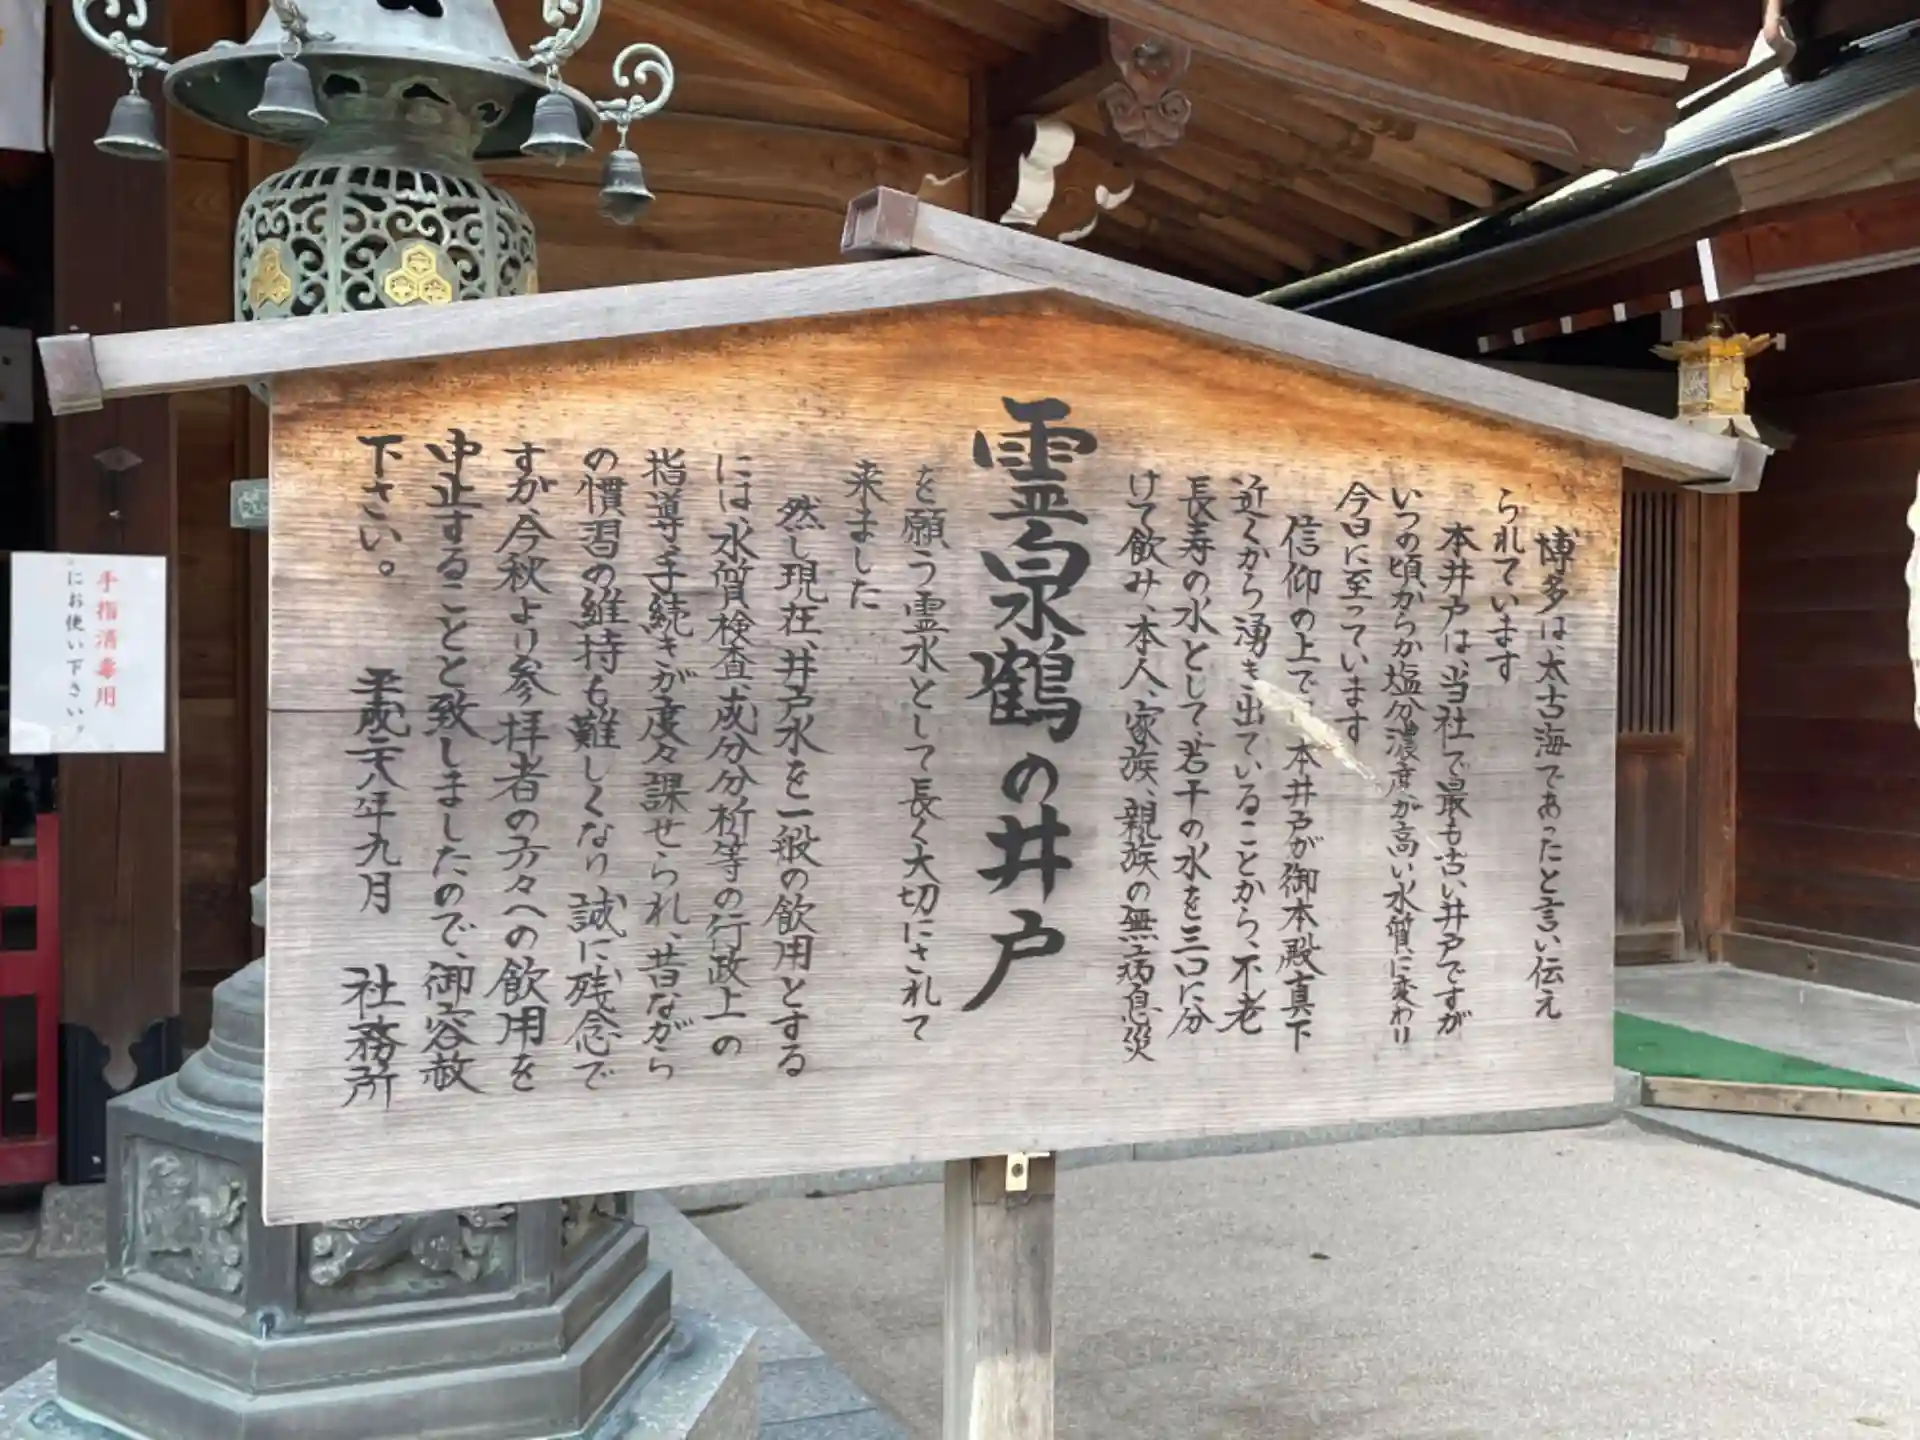 博多は、太古海であったと言い伝え
られています
本井戸は、当社で最も古い井戸ですが
いつの頃からか塩分濃度が高い水質に変わり
今日に至っています
信仰の上では本井戸が御本殿真下
近くから湧き出ていることから、不老
長寿の水として、若干の水を三口に分
けて飲み、本人、家族、親族の無病息災
霊泉鶴の井戸
を願う霊水として長く大切にされて
来ました
然し現在、井戸水を一般の飲用とする
には、水質検査、成分分析等の行政上の
指導、手続きが度々課せられ、昔ながら
の慣習の維持も難しくなり誠に残念で
すが、今秋より参拝者の方々への飲用を
中止することと致しましたので、御容赦
下さい。 平成二八年九月 社務所
手指消毒用
にお使い下さい。